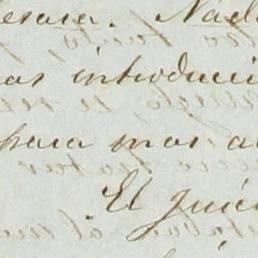 esara. Nad
as introduci
para mas a
El juic